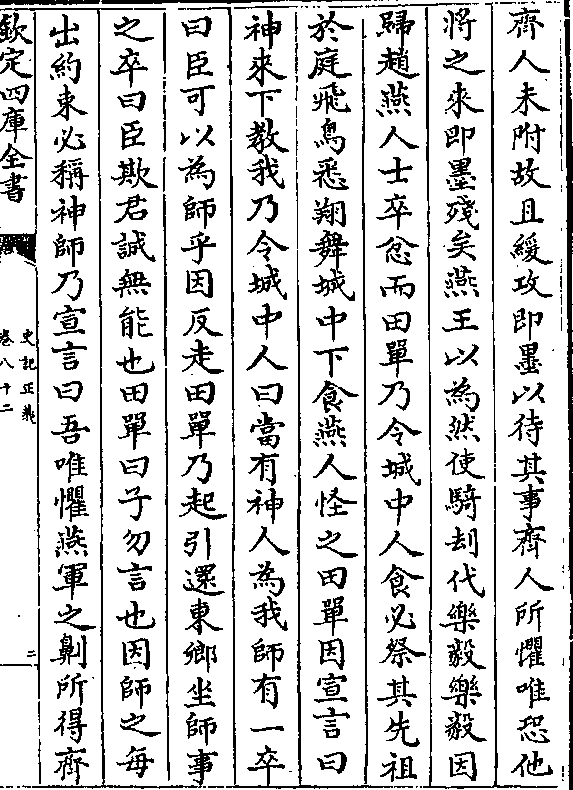 齊人未附故且緩攻即墨以待其事齊人所懼唯恐他
將之來即墨殘矣燕王以為然使騎刦代樂毅樂毅因
歸趙燕人士卒忿而田單乃令城中人食必祭其先祖
於庭飛鳥悉翔舞城中下食燕人怪之田單因宣言曰
神來下教我乃令城中人曰當有神人為我師有一卒
曰臣可以為師乎因反走田單乃起引還東鄉坐師事
之卒曰臣欺君誠無能也田單曰子勿言也因師之每
出約束必稱神師乃宣言曰吾唯懼燕軍之劓所得齊
欽定四庫全書
史記正義
卷八十二
二